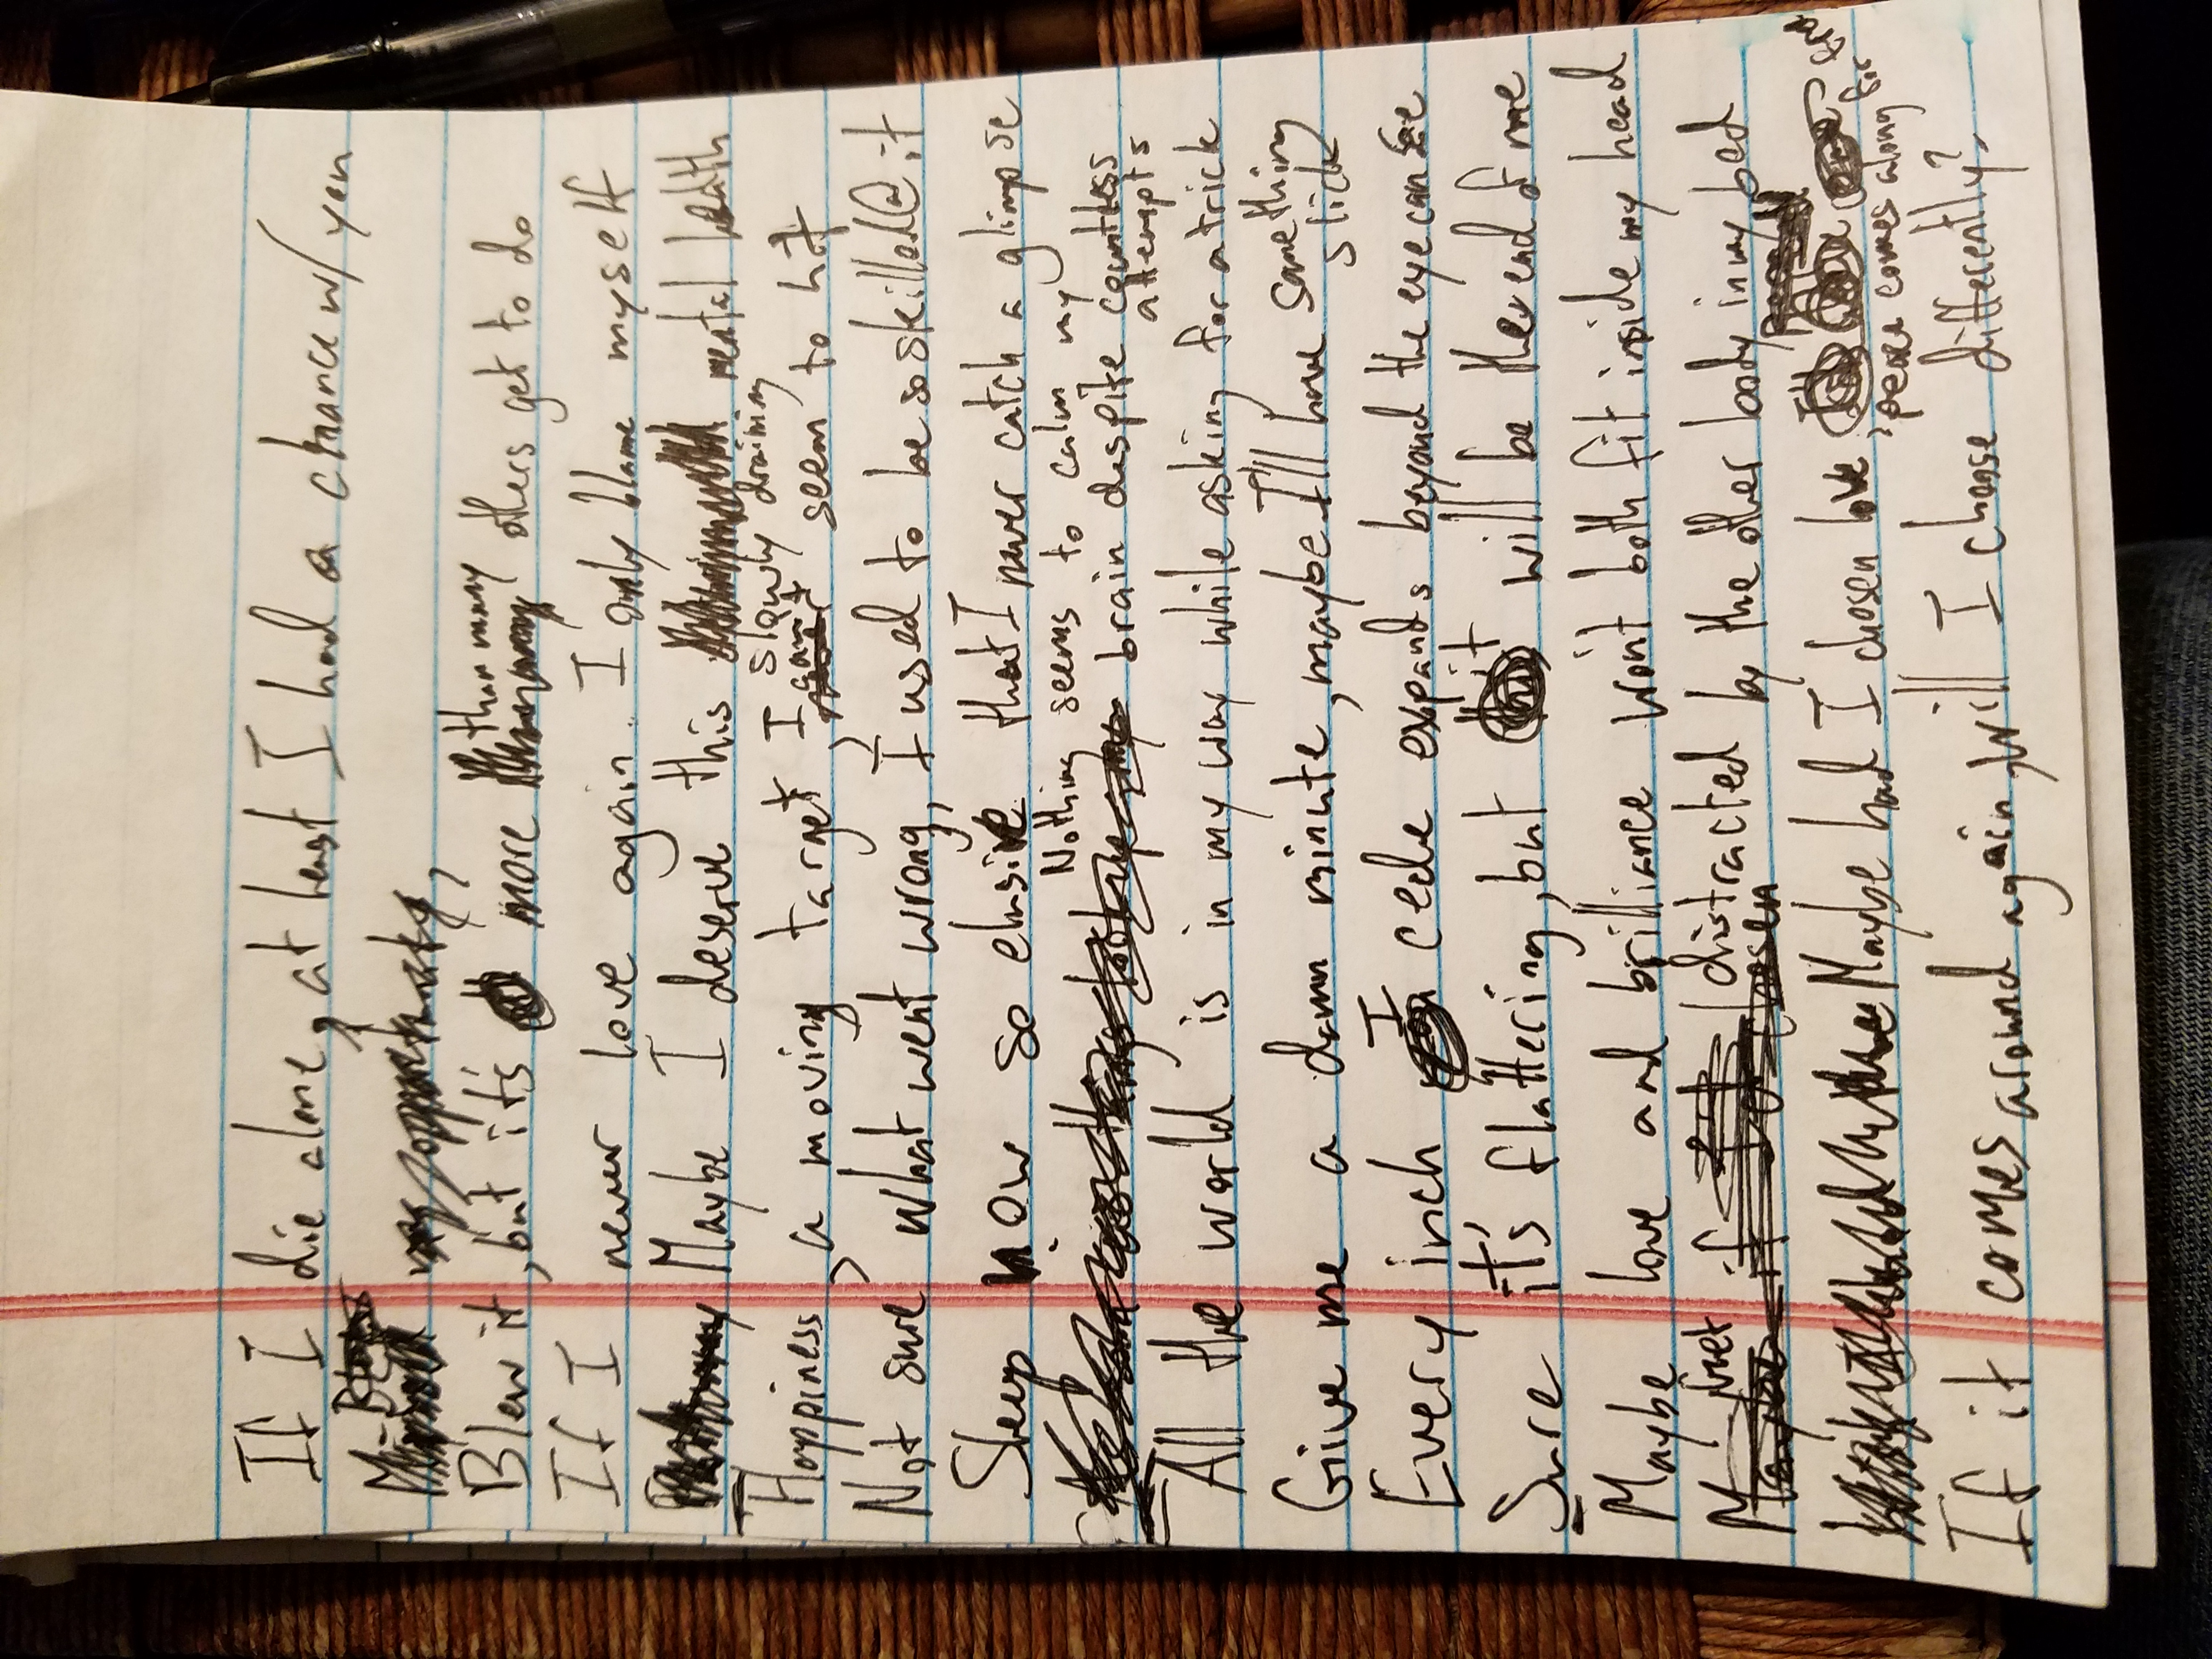 If I die alone, at least I had a chance w/ you
Blew it, but it's more than many others get to do
If I never love again. I only blame myself
Maybe I deserve this mental health
slowly draining
Happiness, a moving target, I can't seem to hit
Not sure what went wrong, I used to be so skilled @ it
Sleep now so elusive that I never catch a glimpse
Nothing seems to calm my
brain despite countless
attempts
All the world is in my way while asking for a trick
Give me a damn minute, maybe I'll have something
slick
Every inch I cede expands beyond the eye can see
Sure it's flattering, but it will be the end of me
Maybe love and brilliance won't both fit inside my head
just distracted by the other body in my bed
Maybe had I chosen love,
peace comes along for
If it comes around again, will I choose differently?